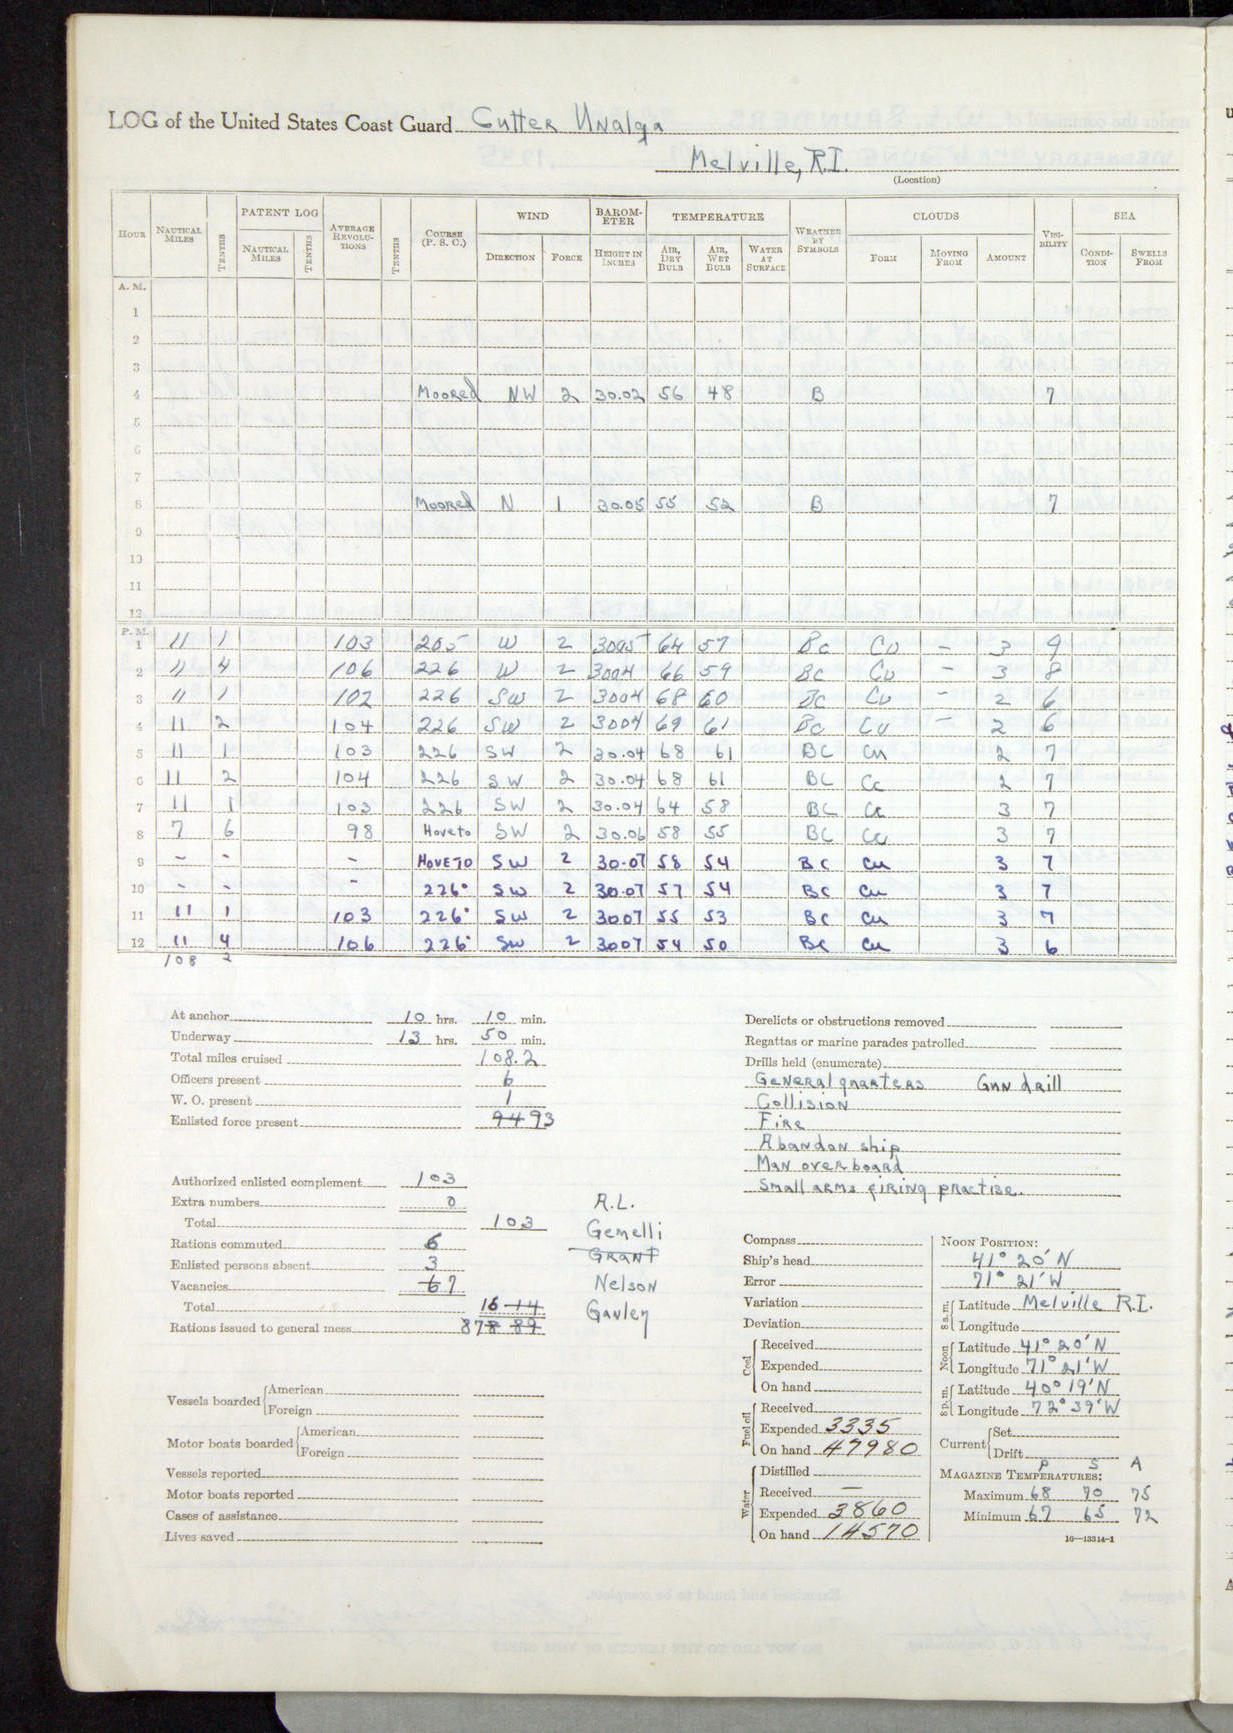 LOG of the United States Coast Guard Cutter Unalga
Melville, R.I.
(Location)
HOUR NAUTICAL MILES TENTHS PATENT LOG NAUTICAL MILES TENTHS AVERAGE REVOLUTIONS TENTHS COURSE (P. S. C.) WIND DIRECTION FORCE BAROMETER HEIGHT IN INCHES TEMPERATURE AIR, DRY BULB AIR, WET BULB WATER AT SURFACE WEATHER BY SYMBOLS CLOUDS FORM MOVING FROM AMOUNT VISIBILITY SEA CONDITION SWELLS FROM
A. M.
1
2
3
4 Moored NW 2 30.02 56 48 B 7
5
6
7
8 Moored N 1 30.05 55 52 B 7
9
10
11
12
P. M.
1 11 1 103 205 W 2 3005 64 57 Bc Cu – 3 9
2 11 4 106 226 W 2 3004 66 59 Bc Cu – 3 8
3 11 1 102 226 SW 2 3004 68 60 Bc Cu – 2 6
4 11 2 104 226 SW 2 3004 69 61 Bc Cu – 2 6
5 11 1 103 226 SW 2 30.04 68 61 BC Cu 2 7
6 11 2 104 226 SW 2 30.04 68 61 BC Cu 2 7
7 11 1 103 226 SW 2 30.04 64 58 BC Cu 3 7
8 7 6 98 Hove to SW 2 30.06 58 55 BC Cu 3 7
9 – – – HOVE TO SW 2 30.07 58 54 BC Cu 3 7
10 – – – 226° SW 2 30.07 57 54 BC Cu 3 7
11 11 1 103 226° SW 2 3007 55 53 BC Cu 3 7
12 11 4 106 226° SW 2 3007 54 50 BC Cu 3 6
108 2
At anchor 10 hrs. 10 min.
Underway 13 hrs. 50 min.
Total miles cruised 108.2
Officers present 6
W. O. present 1
Enlisted force present 94 93
Authorized enlisted complement 103
Extra numbers 0
Total 103
Rations commuted 6
Enlisted persons absent 3
Vacancies 6 7
Total 16 14
Rations issued to general mess 87 88 89
R.L.
Gemelli
Grant
Nelson
Gauley
Vessels boarded American
Foreign
Motor boats boarded American
Foreign
Vessels reported
Motor boats reported
Cases of assistance
Lives saved
Derelicts or obstructions removed
Regattas or marine parades patrolled
Drills held (enumerate)
General quarters Gun drill
Collision
Fire
Abandon ship
Man overboard
Small arms firing practise.
Compass
Ship's head
Error
Variation
Deviation
Coal Received
Expended
On hand
Fuel oil Received
Expended 3335
On hand 47980
Water Distilled
Received —
Expended 3860
On hand 14570
NOON POSITION:
41° 20' N
71° 21' W
8 a.m. Latitude Melville R.I.
Longitude
Noon Latitude 41° 20' N
Longitude 71° 21' W
8 p.m. Latitude 40° 19' N
Longitude 72° 39' W
Current Set
Drift
P S A
MAGAZINE TEMPERATURES:
Maximum 68 70 75
Minimum 67 65 72
16—13314-1